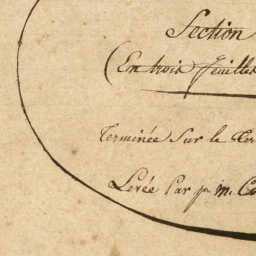 Section
(En trois feuilles
Terminée Sur le Ter
Levée Par